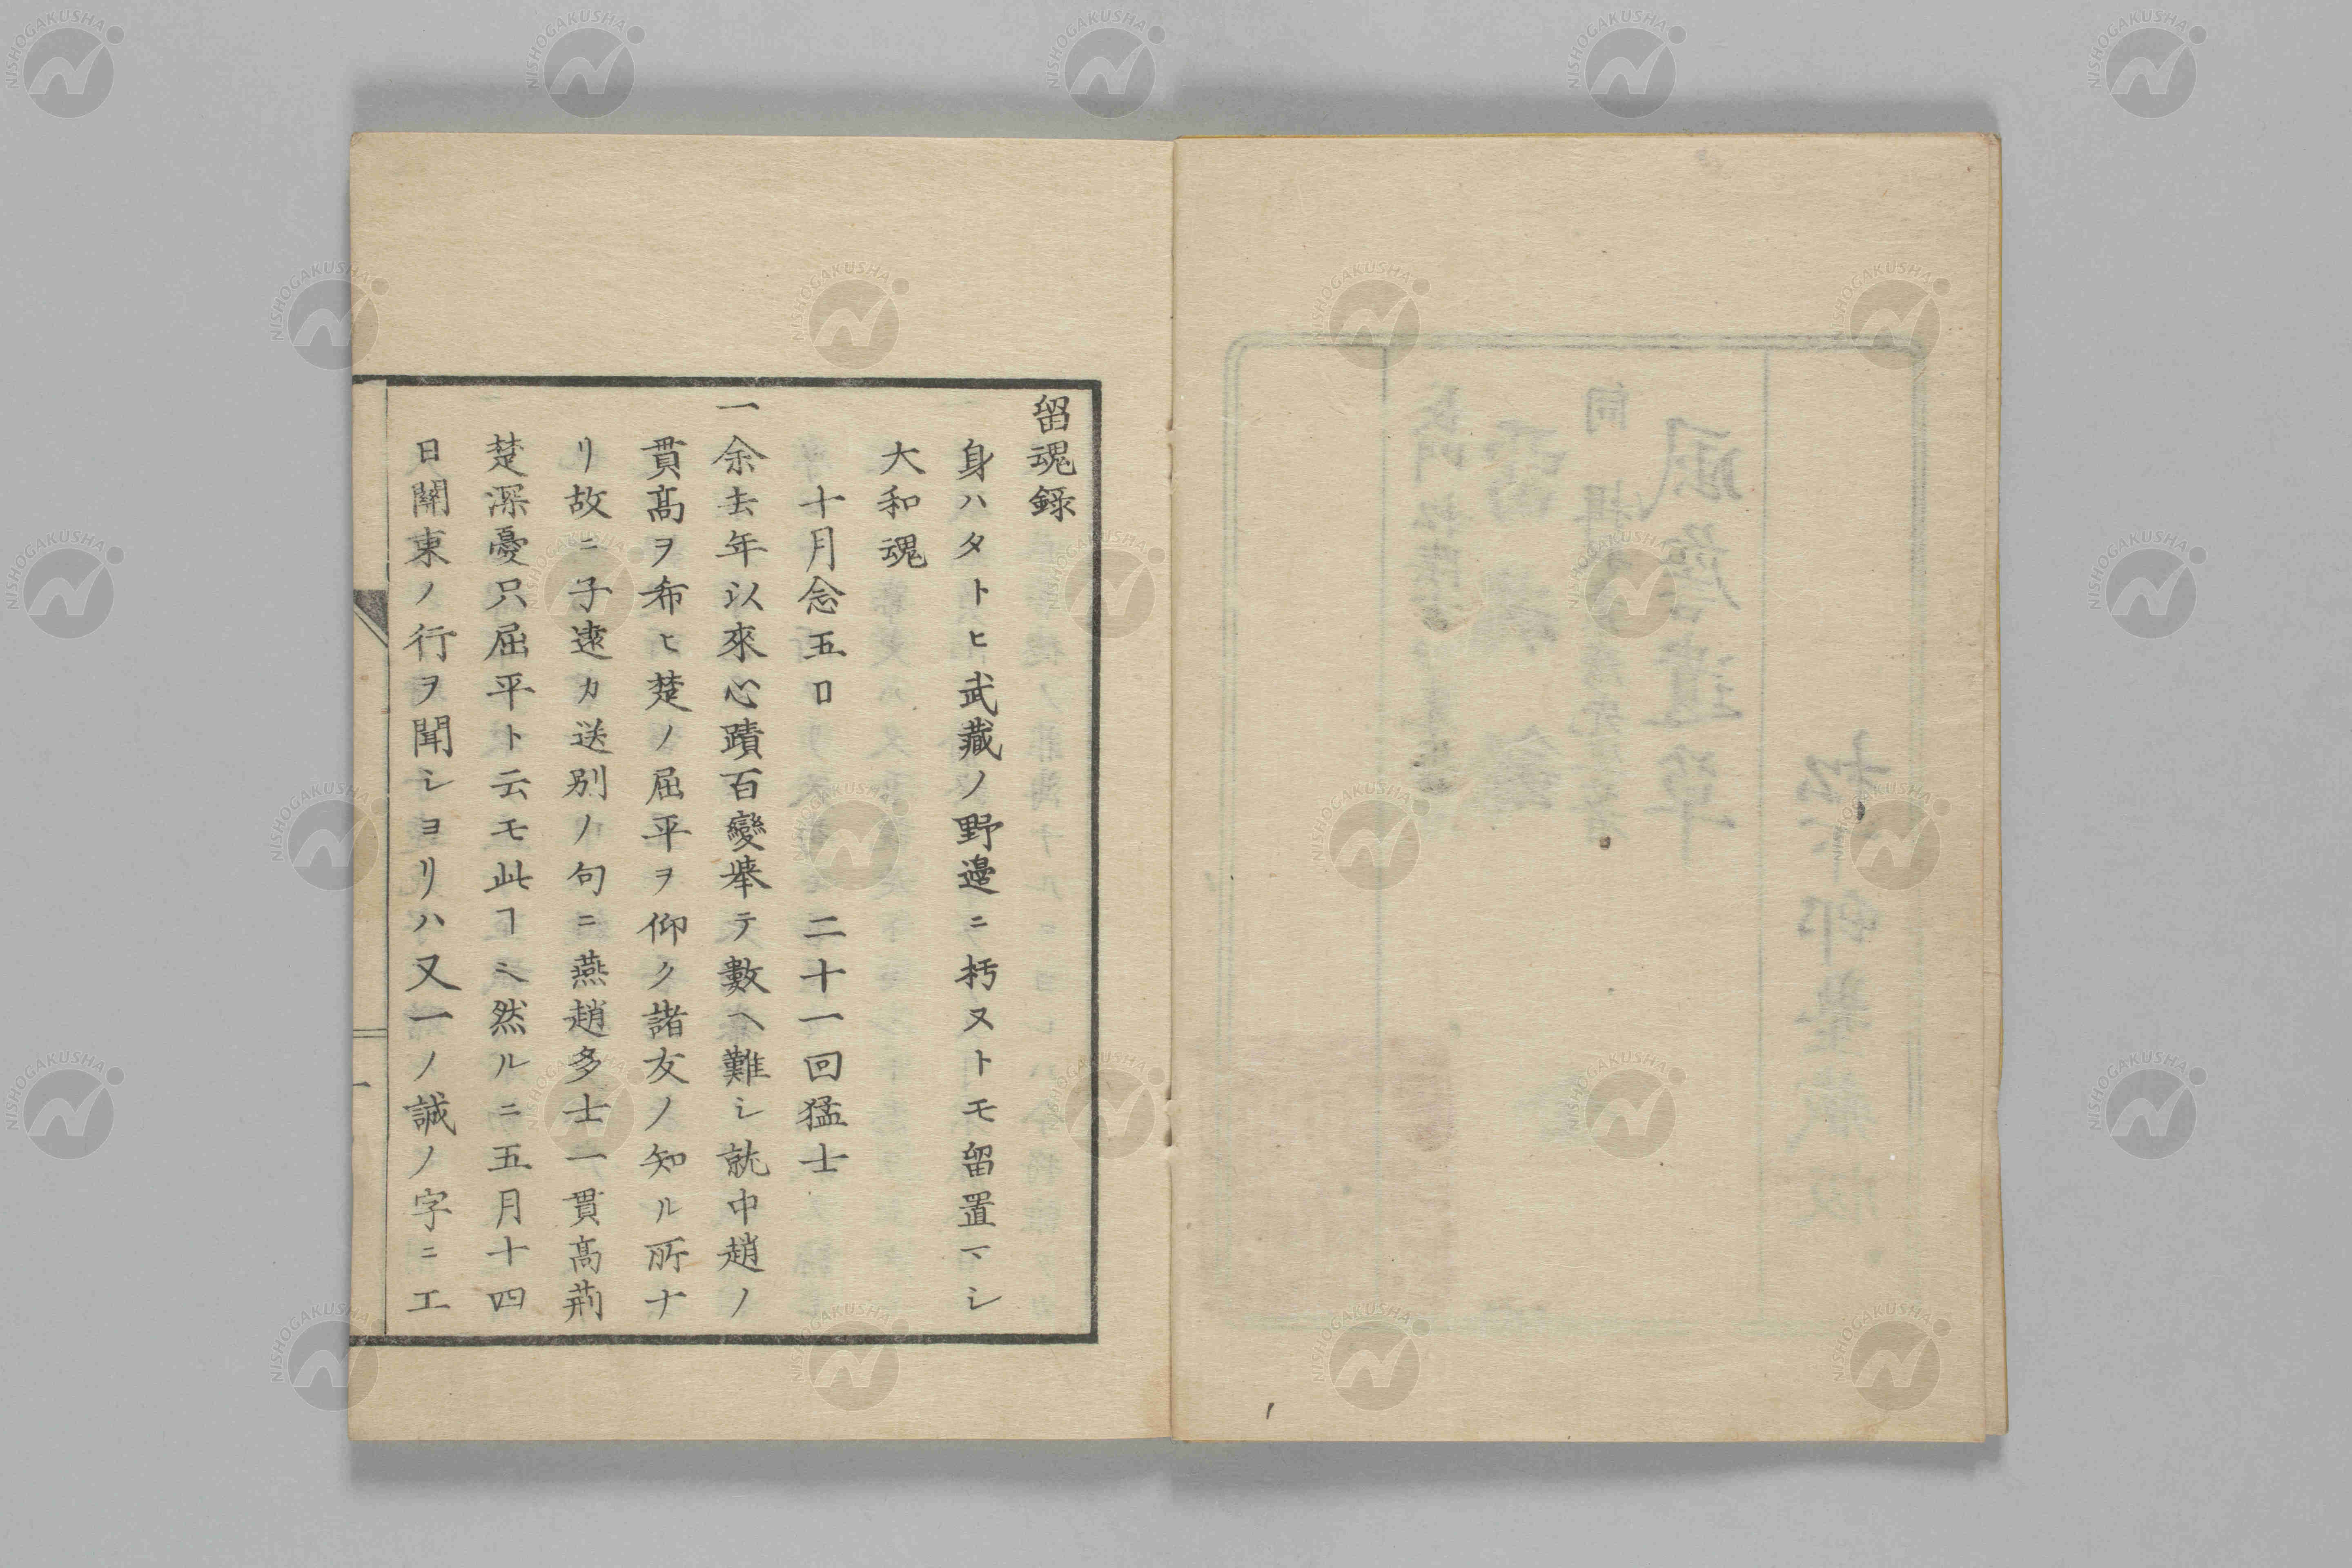 留魂録
身ハタトヒ武藏ノ野邊ニ朽ヌトモ留置マシ
大和魂
十月念五日 二十一回猛士
一余去年以來心蹟百變舉テ數ヘ難シ就中趙ノ
貫高ヲ希ヒ楚ノ屈平ヲ仰ク諸友ノ知ル所ナ
リ故ニ子遠カ送別ノ句ニ燕趙多士一貫高荊
楚深憂只屈平ト云モ此ヿ也然ルニ五月十四
日關東ノ行ヲ聞シヨリハ又一ノ誠ノ字ニ工
一
NISHOGAKUSHA